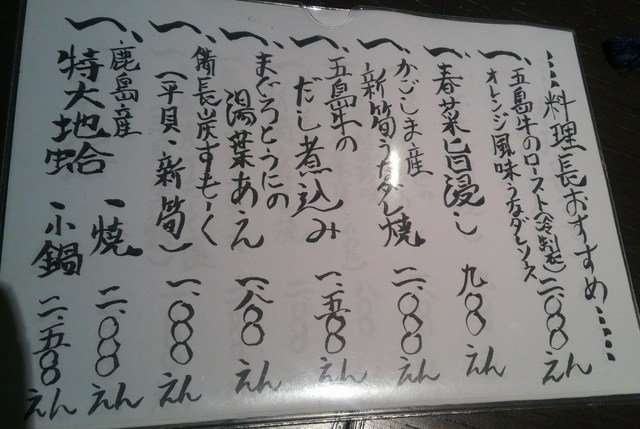 ……料理長おすすめ……
一、五島牛のロースト(冷製) 二、〇〇〇えん
オレンジ風味うなダレソース
一、春菜旨浸し 九〇〇えん
一、かごしま産
新筍うなダレ焼 二、〇〇〇えん
一、五島牛の
だし煮込み 一、五〇〇えん
一、まぐろとうにの
湯葉あえ 一、八〇〇えん
一、備長炭すもーく
(平貝・新筍) 一、〇〇〇えん
一、鹿島産
特大地蛤 一焼 二、〇〇〇えん
一小鍋 二、五〇〇えん